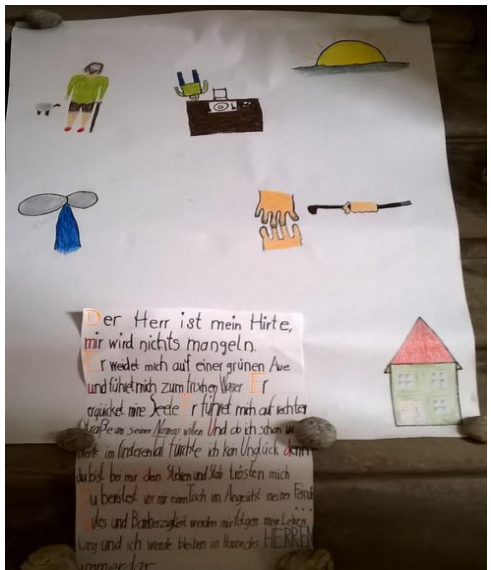 Der Herr ist mein Hirte,
mir wird nichts mangeln.
Er weidet mich auf einer grünen Aue
und führet mich zum frischen Wasser Er
erquicket meine Seele Er führet mich auf rechter
Straße um seines Namens willen Und ob ich schon
im finsteren tal fürchte ich kein Unglück denn
du bist bei mir dein Stecken und Stab trösten mich
Du bereitest vor mir einen Tisch im Angesicht meiner Feinde
Gutes und Barmherzigkeit werden mir folgen mein Leben
lang und ich werde bleiben im Hause des HERREN
immerdar